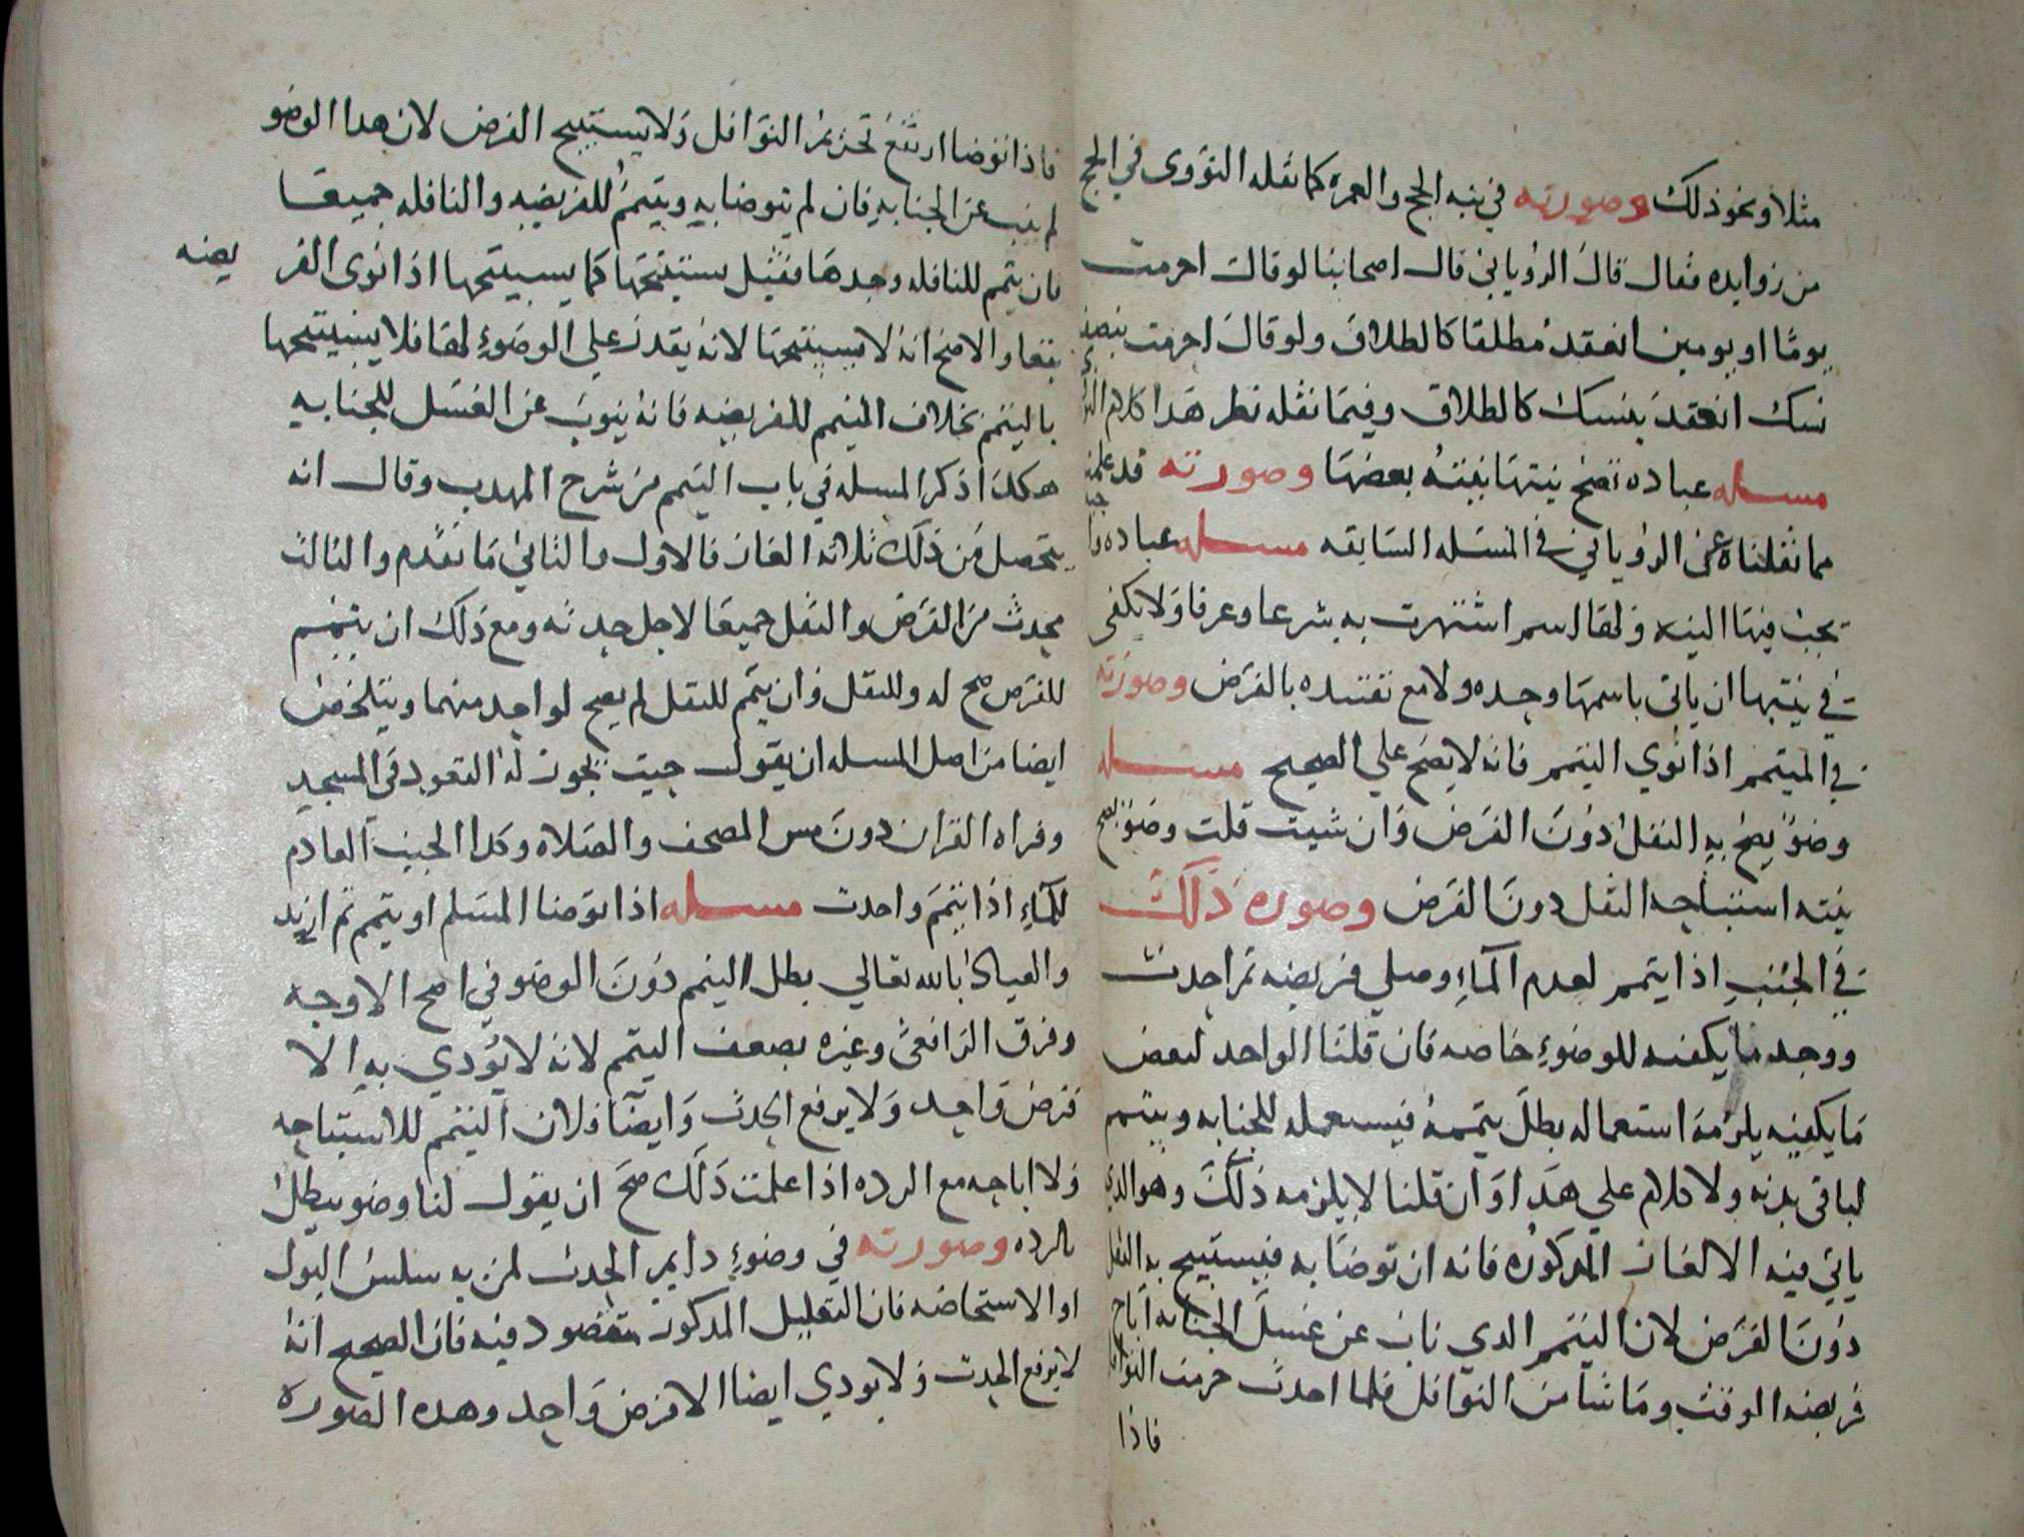 مثلا ونحو ذلك وصورته في نية الحج والعمرة كما نقله النووى في الحج
من زوايده فقال قال الروياني قال اصحابنا لو قال احرمت
يوما او يومين انعقد مطلقا كالطلاق ولو قال احرمت بنصف
نسك انعقد بنسك كالطلاق وفيما نقله نظر هذا كلام
مسله عباده تصح نيتها بنية بعضها وصورته قد علمت
مما نقلناه عن الروياني في المسله السابقه مسله عباده
يجب فيها النيه ولها اسم اشتهرت به شرعا وعرفا ولا يكفى
في نيتها ان ياتى باسمها وحده ولا مع تقييده بالفرض وصورته
في المتيمم اذا نوي التيمم فانه لا يصح علي الصحيح مسله
وضوء يصح به النفل دون الفرض وان شيت قلت وضوء يصح
بنيته استباحه النفل دون الفرض وصوره ذلك
في الجنب اذا تيمم لعدم الماء وصلي فريضه ثم احدث
ووجد ما يكفيه للوضوء خاصه فان قلنا الواجد لبعض
ما يكفيه يلزمه استعماله بطل تيممه فيستعمله للجنابه ويتيمم
لباقى بدنه ولا كلام علي هذا وان قلنا لا يلزمه ذلك وهو الذي
ياتي فيه الالغاز المذكوره فانه ان توضا به فيستبيح به النفل
دون الفرض لان التيمم الذي ناب عن غسل الجنابه اباح
فريضه الوقت وما شا من النوافل فلما احدث حرمت النوافل
فاذا
فاذا توضا ارتفع تحريم النوافل ولا يستبيح الفرض لان هذا الوضو
لم ينب عن الجنابه فان لم يتوضا به ويتيمم للفريضه والنافله جميعا
فان تيمم للنافله وحدها فقيل يستبيحها كما يستبيحها اذا نوى الفر يضه
تبعا والاصح انه لا يستبيحها لانه يقدر علي الوضوء لها فلا يستبيحها
بالتيمم بخلاف التيمم للفريضه فانه ينوب عن الغسل للجنابه
هكذا ذكر المسله في باب التيمم من شرح المهذب وقال انه
يتحصل من ذلك ثلاثه الغاز فالاول والثاني ما تقدم والثالث
محدث من الفرض والنفل جميعا لاجل حدثه ومع ذلك ان يتيمم
للفرض صح له وللنفل وان يتمم للنفل لم يصح لواحد منهما ويتلخص
ايضا من اصل المسله ان يقول جنب يجوز له القعود في المسجد
وقراه القران دون مس المصحف والصلاه وكذا الجنب العادم
للماء اذا تيمم واحدث مسله اذا توضا المسلم او تيمم ثم ارتد
والعياذ بالله تعالي بطل التيمم دون الوضو في اصح الاوجه
وفرق الرافعي وغيره بضعف التيمم لانه لا يؤدي به الا
فرض واحد ولا يرفع الحدث وايضا فلان التيمم للاستباحه
ولا اباحه مع الرده اذا علمت ذلك صح ان يقول لنا وضو يبطل
بالرده وصورته في وضوء دايم الحدث لمن به سلس البول
او الاستحاضه فان التعليل المذكور مقصود فيه فان الصحيح انه
لا يرفع الحدث ولا يودي ايضا الا فرض واحد وهذه الصوره